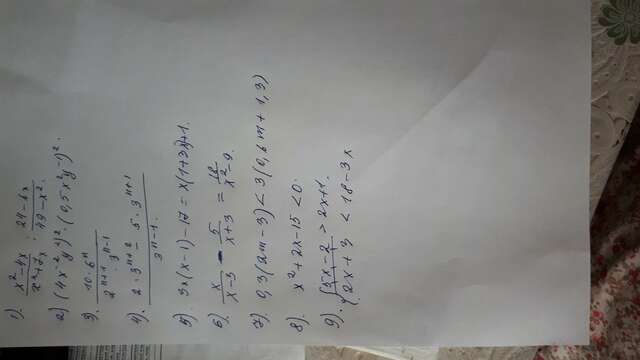 1). x²-4x / x²+7x : 24-6x / 49-x².
2) (4x⁻²y⁴)². (0,5x²y⁻¹)².
3). 10·6ⁿ / 2ⁿ⁺¹·3ⁿ⁻¹
4). 2·3ⁿ⁺² - 5·3ⁿ⁺¹ / 3ⁿ⁻¹.
5) 3x(x-1)-17=x(1+3x)+1.
6). x / x-3 - 5 / x+3 = 18 / x²-9.
7) 0,3(2m-3)<3(0,6m+1,3)
8). x²+2x-15<0.
9). { 5x-2>2x+1.
2x+3 <18-3x